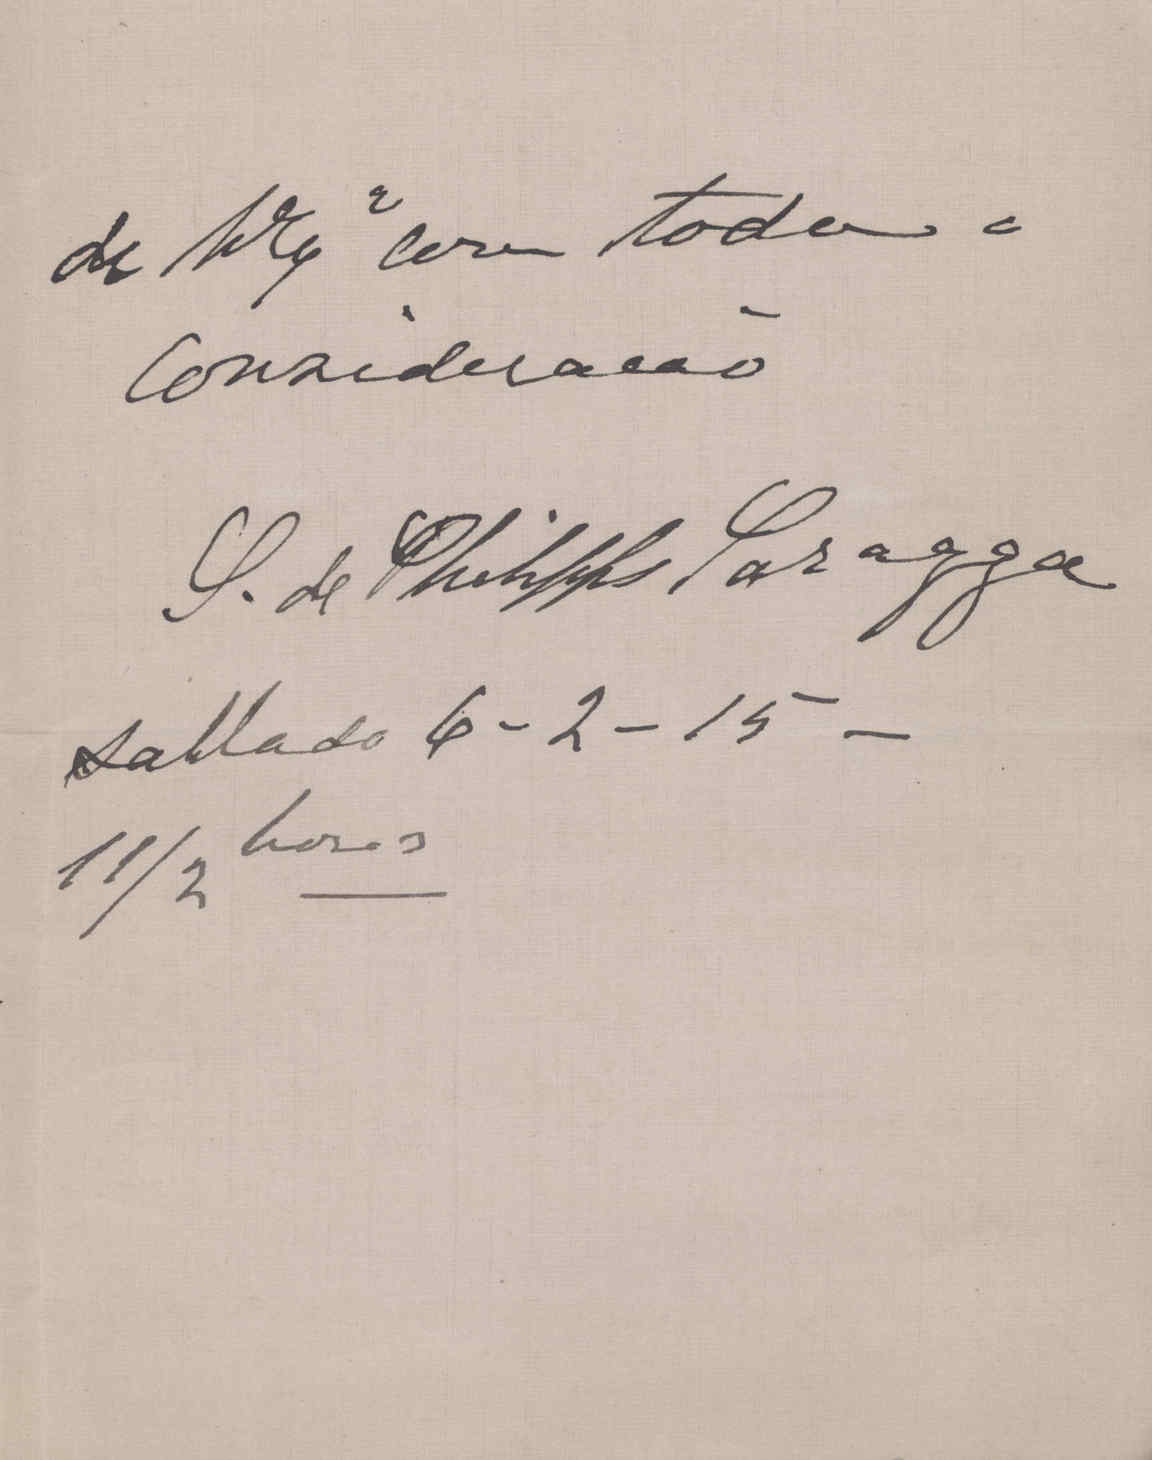 de V. Exª com toda a
Consideração
S. de Philipps Saragga
sabbado 6-2-15-
11/2 horas